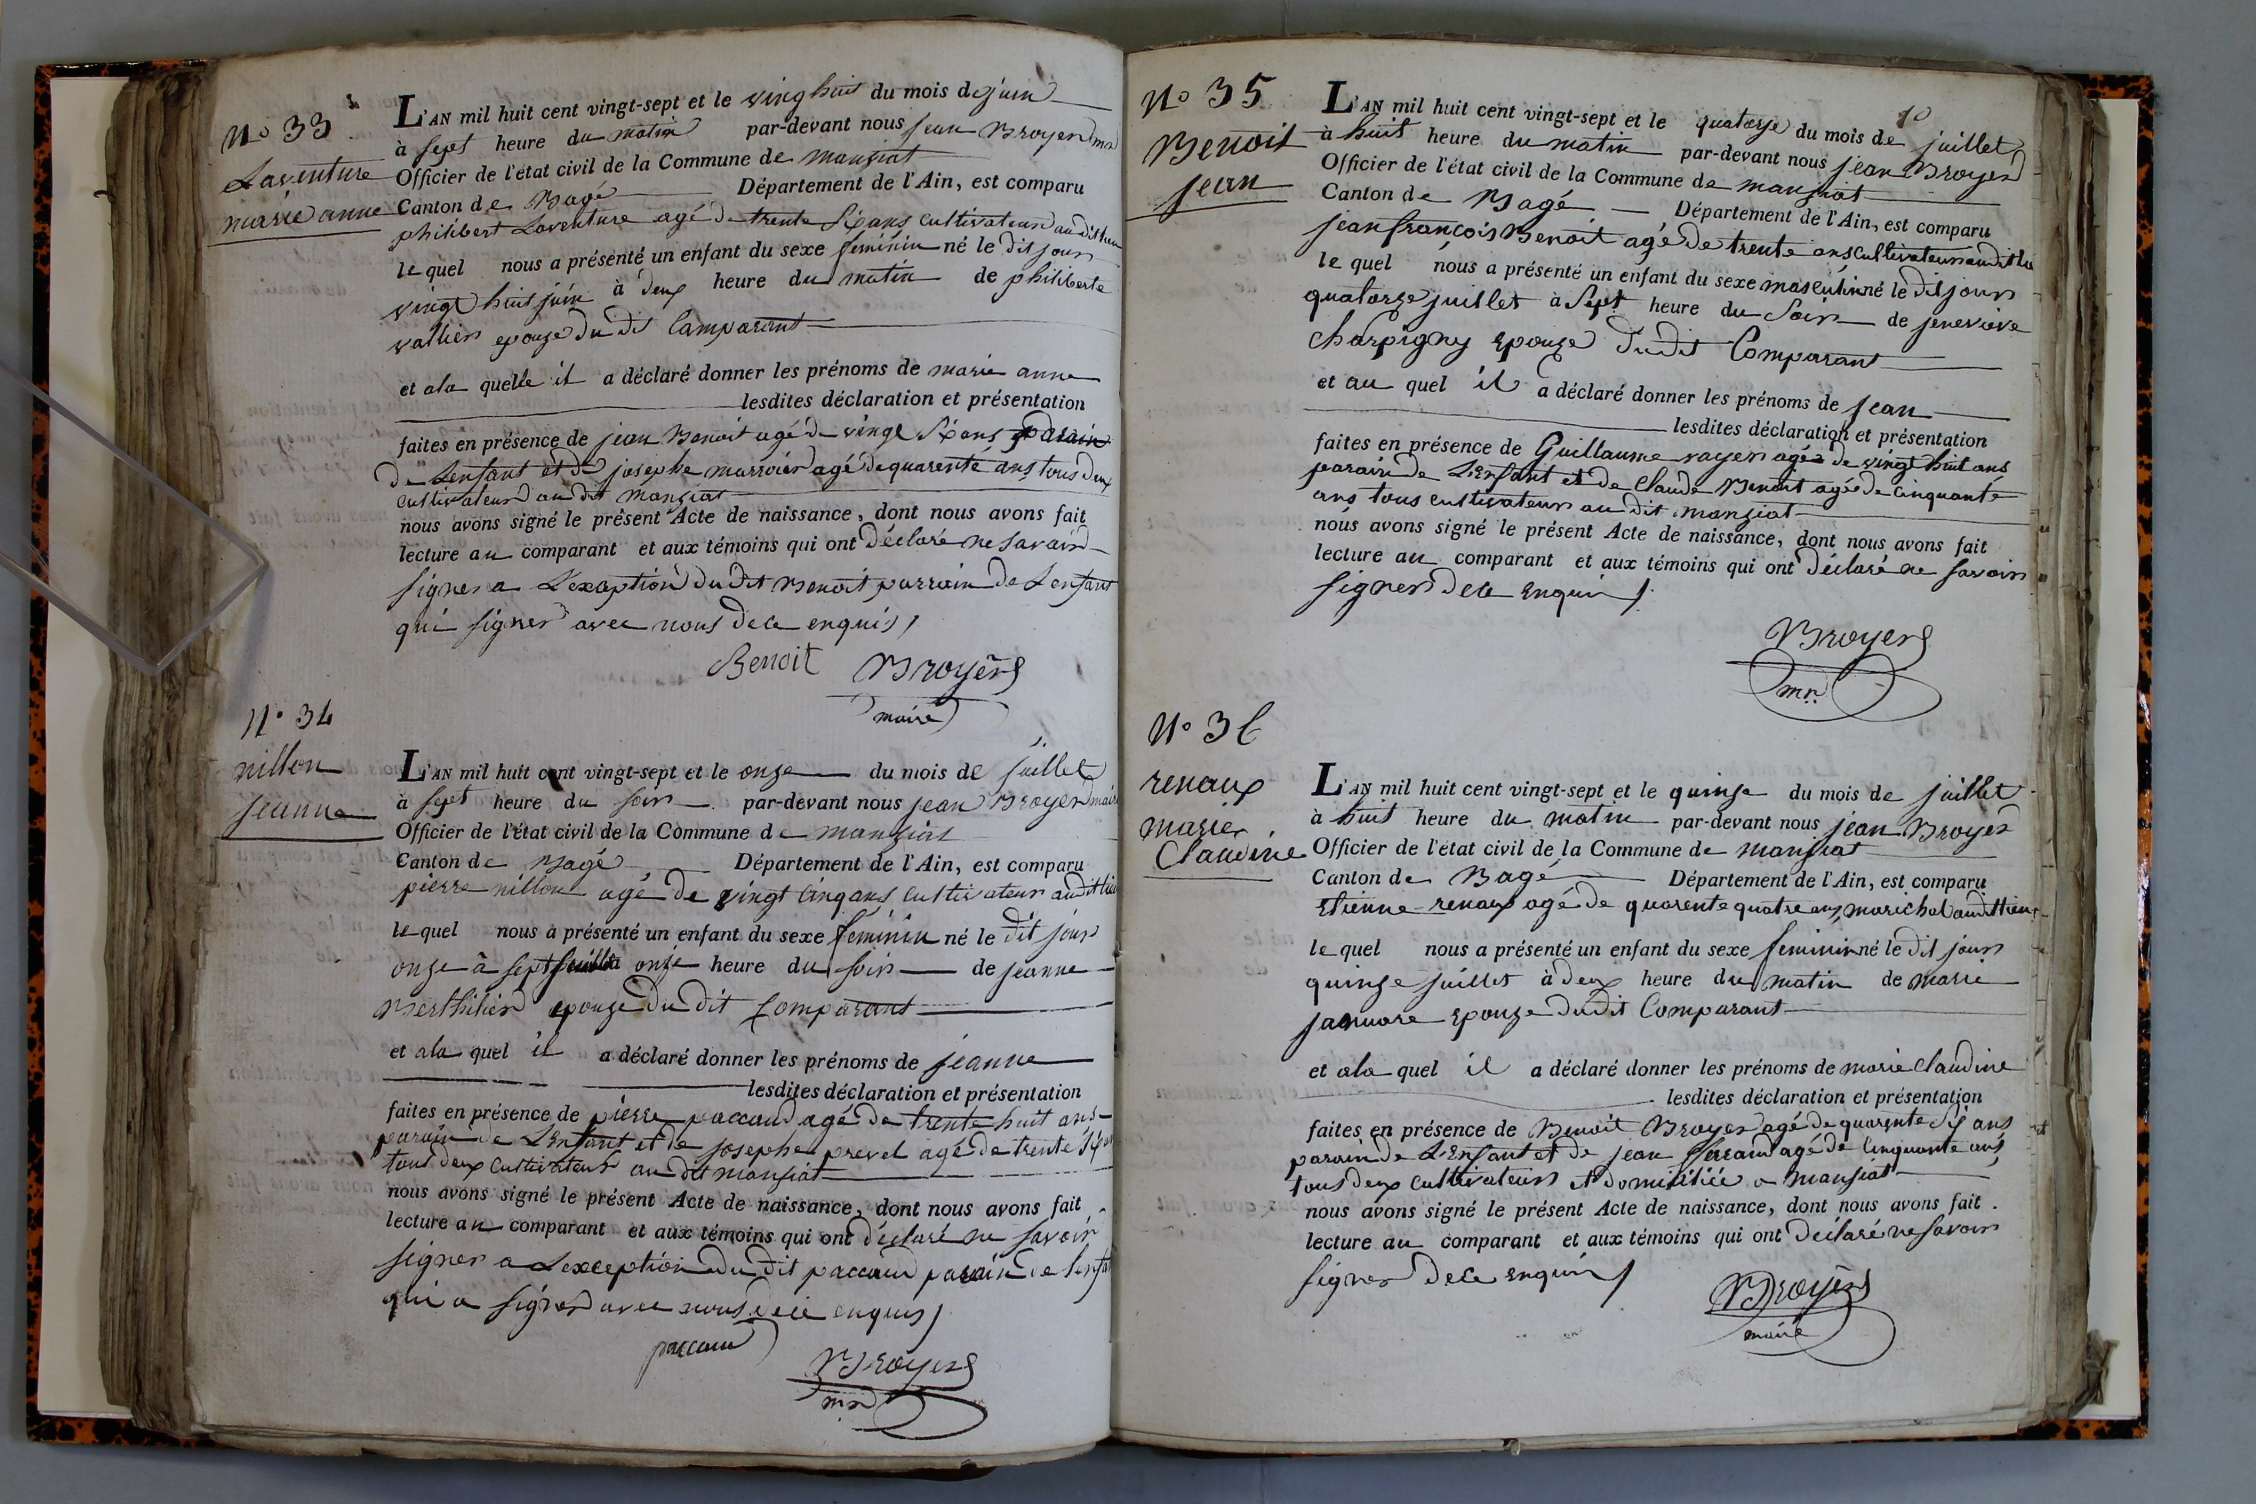 N° 33
Laventure
marie anne
L'AN mil huit cent vingt-sept et le ving huit du mois de juin
à sept heure du matin par-devant nous jean Broyer mre
Officier de l'état civil de la Commune de manziat
Canton de Bagé Département de l'Ain, est comparu
philibert Laventure agé de trente six ans cultivateur audit lieu
le quel nous a présenté un enfant du sexe féminin né le dit jour
vingt huit juin à deux heure du matin de philiberte
vallier epouze du dit Comparant
et ala quelle il a déclaré donner les prénoms de marie anne
lesdites déclaration et présentation
faites en présence de jean Benoit agé de vingt six ans parain
de Lenfant et de josephe marvier agé de quarente ans tous deux
cultivateur au dit manziat
nous avons signé le présent Acte de naissance, dont nous avons fait
lecture au comparant et aux témoins qui ont déclaré ne savoir
signer a L'exception du dit Benoit parrain de Lenfant
qui signer avec nous de ce enquis,
Benoit Broyer
maire
N° 34
nillon
jeanne
L'AN mil huit cent vingt-sept et le onze du mois de juillet
à sept heure du soir par-devant nous jean Broyer maire
Officier de l'état civil de la Commune de manziat
Canton de Bagé Département de l'Ain, est comparu
pierre nillon agé de vingt cinq ans cultivateur audit lieu
le quel nous a présenté un enfant du sexe féminin né le dit jour
onze à sept onze heure du soir de jeanne
Berthilier epouze du dit Comparant
et ala quel il a déclaré donner les prénoms de jeanne
lesdites déclaration et présentation
faites en présence de pierre paccaud agé de trente huit ans
parain de L'enfant et de josephe prevel agé de trente six
tous deux cultivateur au dit manziat
nous avons signé le présent Acte de naissance, dont nous avons fait
lecture au comparant et aux témoins qui ont déclaré ne savoir
signer a Lexception du dit paccaud parain de Lenfant
qui a signer avec nous de ce enquis
paccaud
Broyer
mre
N° 35
Benoit
jean
10
L'AN mil huit cent vingt-sept et le quatorze du mois de juillet
à huit heure du matin par-devant nous jean Broyer
Officier de l'état civil de la Commune de manziat
Canton de Bagé Département de l'Ain, est comparu
jean françois Benoit agé de trente ans cultivateur audit lieu
le quel nous a présenté un enfant du sexe masculin né le dit jour
quatorze juillet à sept heure du soir de jenevieve
Charpigny epouze dudit Comparant
et au quel il a déclaré donner les prénoms de jean
lesdites déclaration et présentation
faites en présence de Guillaume rayer agé de vingt huit ans
parain de L'enfant et de Claude Benoit agée de cinquante
ans tous cultivateur au dit manziat
nous avons signé le présent Acte de naissance, dont nous avons fait
lecture au comparant et aux témoins qui ont déclaré ne savoir
signer de ce enquis
Broyer
mre
N° 36
renaux
marie
Claudine
L'AN mil huit cent vingt-sept et le quinze du mois de juillet
à huit heure du matin par-devant nous jean Broyer
Officier de l'état civil de la Commune de manziat
Canton de Bagé Département de l'Ain, est comparu
Etienne renaux agé de quarente quatre ans, marichal audit lieu
le quel nous a présenté un enfant du sexe feminin né le dit jour
quinze juillet à deux heure du matin de marie
epouze dudit Comparant
et ala quel il a déclaré donner les prénoms de marie Claudine
lesdites déclaration et présentation
faites en présence de Benoit Broyer agé de quarente six ans
parain de L'enfant et de jean agé de Cinquante ans
tous deux cultivateur et domiciliée a manziat
nous avons signé le présent Acte de naissance, dont nous avons fait
lecture au comparant et aux témoins qui ont déclaré ne savoir
signer de ce enquis
Broyer
maire